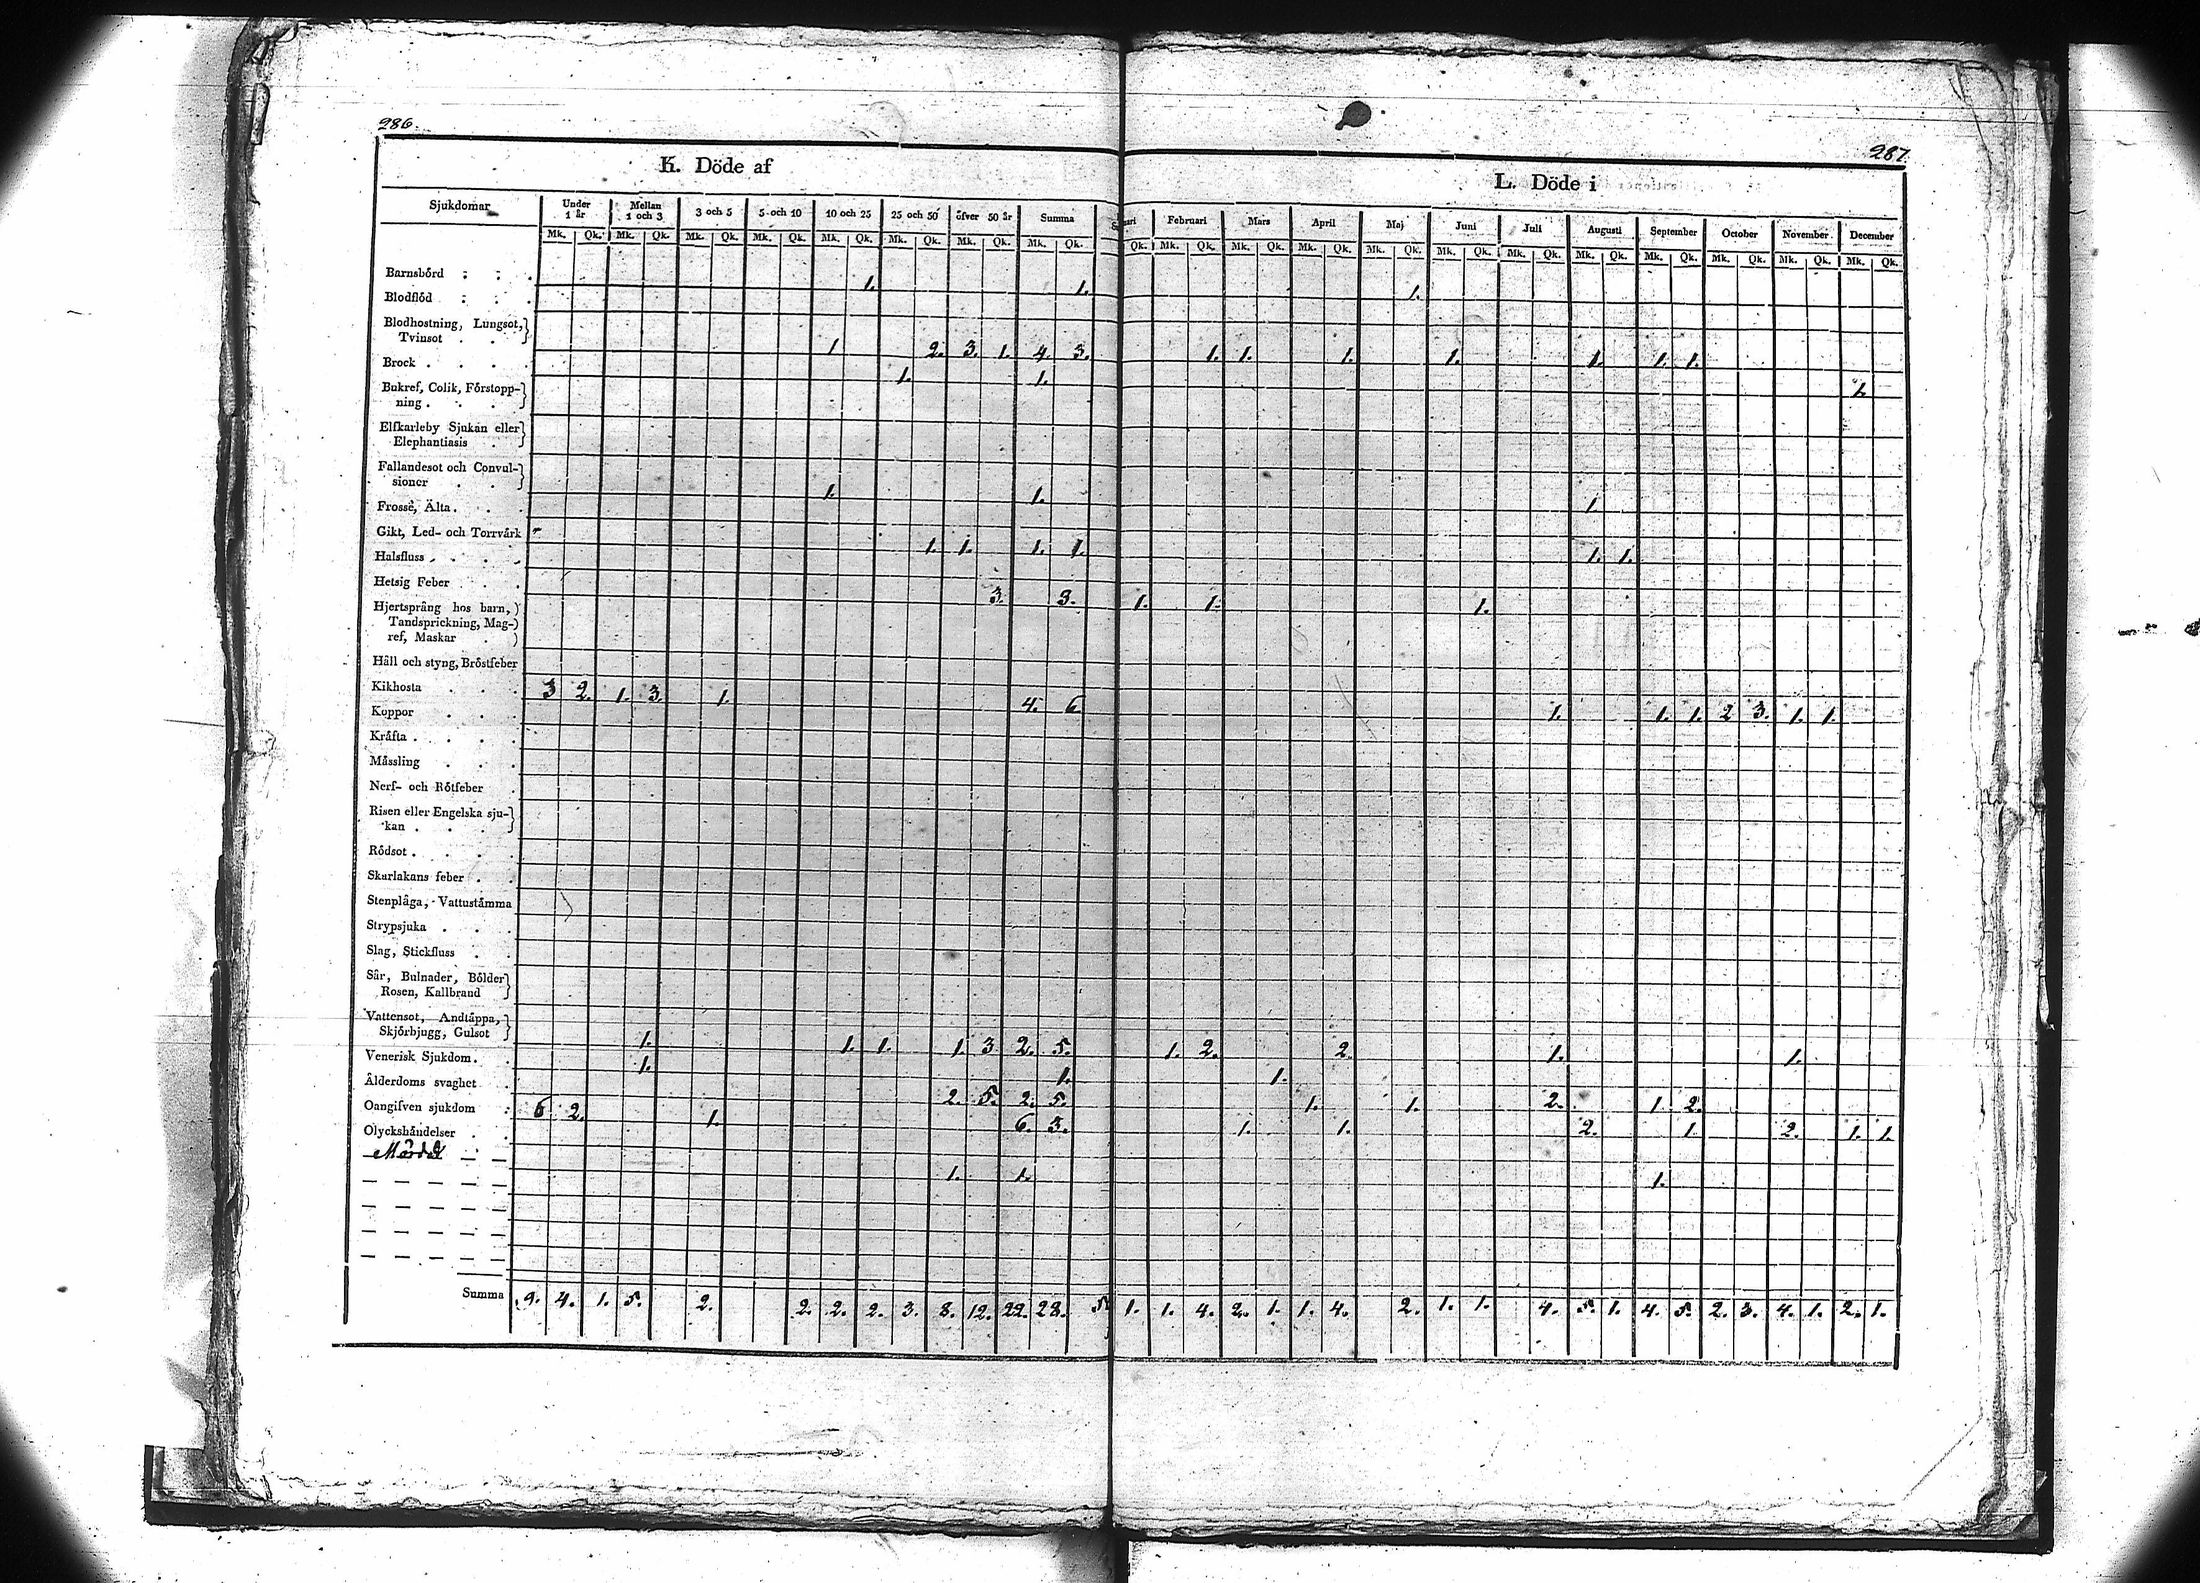 286.
287.
K. Döde af
L. Döde i
Sjukdomar Under 1 år Mellan 1 och 3 3 och 5 5 och 10 10 och 25 25 och 50 öfver 50 år Summa Februari Mars April Maj Juni Juli Augusti September October November. December
Mk. Qk. Mk. Qk. Mk. Qk. Mk. Qk. Mk. Qk. Mk. Qk. Mk. Qk. Mk. Qk. Qk. Mk. Qk. Mk. Qk. Mk. Qk. Mk. Qk. Mk. Qk. Mk. Qk. Mk. Qk. Mk. Qk. Mk. Qk. Mk. Qk. Mk. Qk.
Barnsbörd
1. 1. 1.
Blodflöd
Blodhostning, Lungsot,
Tvinsot
1 2. 3. 1. 4. 3. 1. 1. 1. 1. 1. 1. 1.
Brock
1. 1. 1.
Bukref, Colik, Förstopp-
ning
Elfkarleby Sjukan eller
Elephantiasis
Fallandesot och Convul-
sioner
1. 1. 1
Frossa, Älta
Gikt, Led- och Torrvärk
1. 1. 1. 1. 1. 1.
Halsfluss
Hetsig Feber
3. 3. 1. 1. 1.
Hjertsprång hos barn,
Tandsprickning, Mag-
ref, Maskar
Håll och styng, Bröstfeber
Kikhosta
3 2. 1. 3. 1. 4. 6. 1. 1. 1. 2 3. 1. 1.
Koppor
Kräfta
Mässling
Nerf- och Rötfeber
Risen eller Engelska sju-
kan
Rödsot
Skarlakans feber
Stenplåga, Vattustämma
Strypsjuka
Slag, Stickfluss
Sår, Bulnader, Bölder
Rosen, Kallbrand
Vattensot, Andtäppa,
Skjörbjugg, Gulsot
1. 1. 1. 1. 3 2. 5. 1. 2. 2. 1. 1.
Venerisk Sjukdom
1. 1. 1.
Ålderdoms svaghet
2. 5. 2. 5. 1. 1. 2. 1 2.
Oangifven sjukdom
6 2. 1. 6. 3. 1. 1. 2. 1 2. 1. 1.
Olyckshändelser
1. 1. 1.
Summa 9. 4. 1. 5. 2. 2. 2. 2. 3. 8. 12. 22. 28. 5 1. 1. 4. 2. 1. 1. 4. 2. 1. 1. 4. 5. 1. 4. 5. 2. 3. 4. 1. 2. 1.